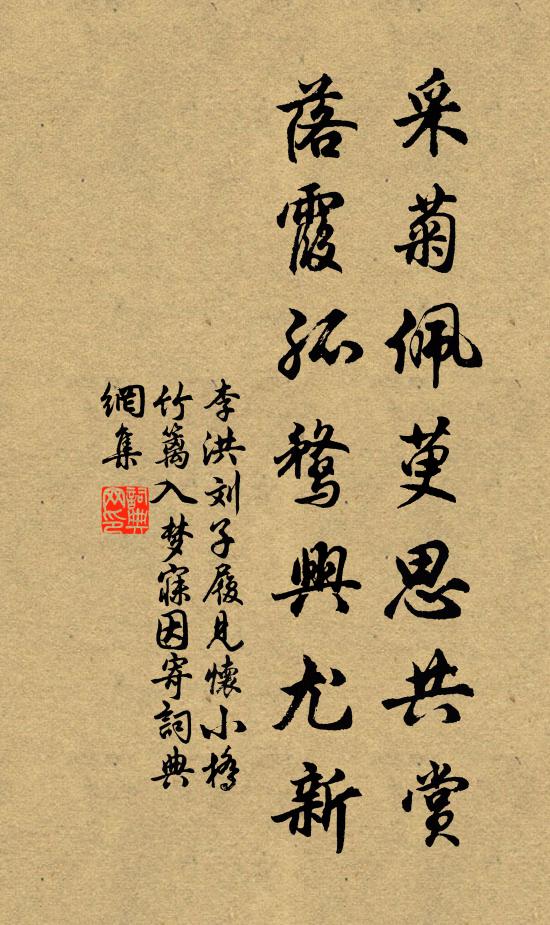 采菊佩萸思共赏
落霞孤鹜興尤新
李洪刘子履见懷小橋
竹篱入梦寐因寄詞典
網集
詞典网印